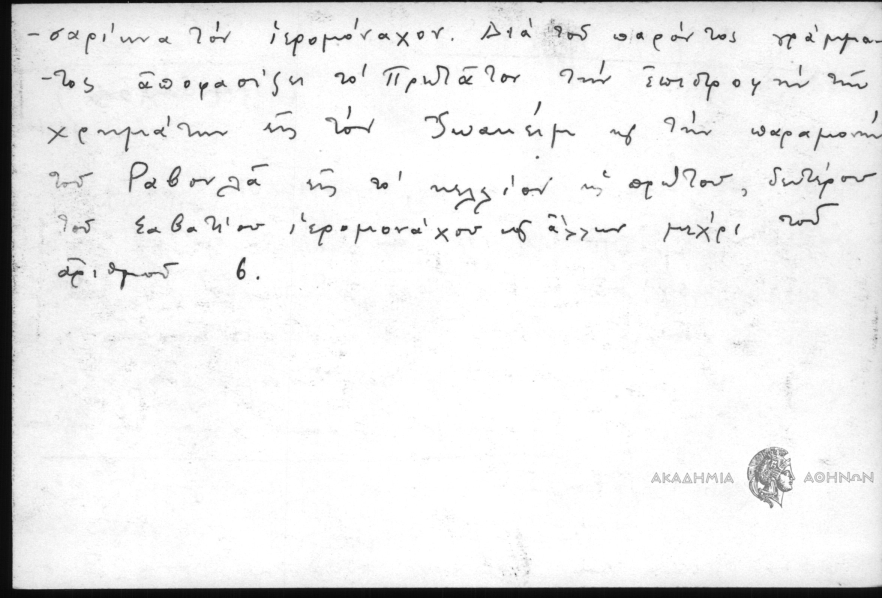 -σαρίωνα τὸν ἱερομόναχον. Διὰ τοῦ παρόντος γράμμα-
-τος ἀποφασίζει τὸ Πρωτᾶτον τὴν ἐπιστροφὴν τῶν
χρημάτων εἰς τὸν Ἰωακεὶμ καὶ τὴν παραμονὴν
τοῦ Ραβουλᾶ εἰς τὸ κελλίον ὡς πρώτου, δευτέρου
τοῦ Σαβατίου ἱερομονάχου καὶ ἄλλων μέχρι τοῦ
ἀριθμοῦ 6.
ΑΚΑΔΗΜΙΑ ΑΘΗΝΩΝ